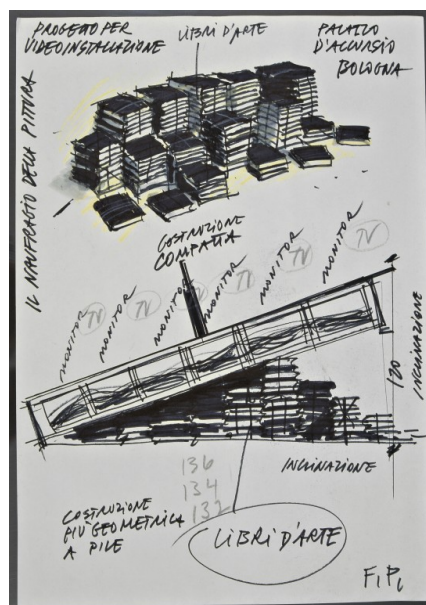 PROGETTO PER
VIDEOINSTALLAZIONE
LIBRI D'ARTE
PALAZZO
D'ACCURSIO
BOLOGNA
IL NAUFRAGIO DELLA PITTURA
COSTRUZIONE
COMPATTA
MONITOR TV
MONITOR TV
MONITOR TV
MONITOR TV
MONITOR TV
MONITOR TV
120
INCLINAZIONE
INCLINAZIONE
136
134
132
COSTRUZIONE
PIÙ GEOMETRICA
A PILE
LIBRI D'ARTE
F.P.